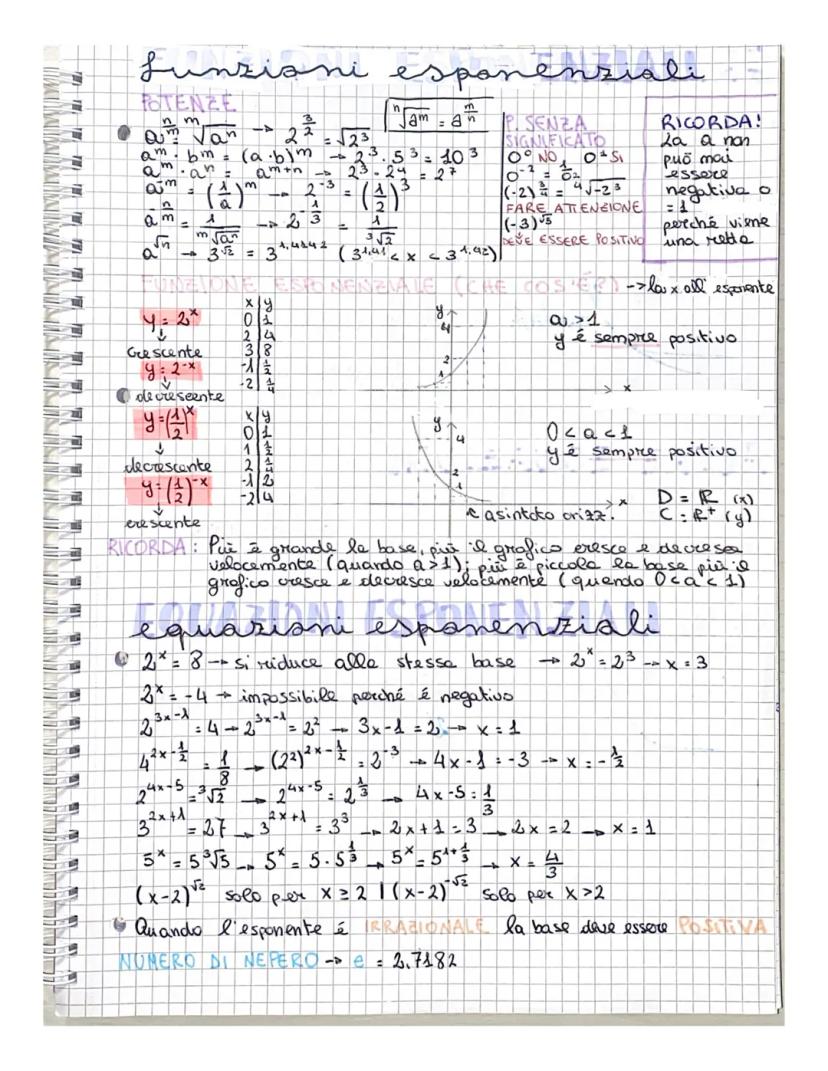 funzioni esponenziali
POTENZE
a^(n/m) = ᵐ√aⁿ → 2^(3/2) = √2³
ⁿ√aᵐ = a^(m/n)
aᵐ · bᵐ = (a·b)ᵐ → 2³ · 5³ = 10³
aᵐ · aⁿ = a^(m+n) → 2³ · 2⁴ = 2⁷
a⁻ᵐ = (1/a)ᵐ → 2⁻³ = (1/2)³
a^(-n/m) = 1/ᵐ√aⁿ → 2^(-1/3) = 1/³√2
a^√n → 3^√2 = 3^1,4142 (3^1,41 < x < 3^1,42)
P. SENZA
SIGNIFICATO
0⁰ NO, 0¹ SI
0⁻² = 1/0²
(-2)^(3/4) = ⁴√-2³
FARE ATTENZIONE
(-3)^√3
DEVE ESSERE POSITIVO
RICORDA!
La a non
può mai
essere
negativa o
= 1
perché viene
una retta
FUNZIONE ESPONENZIALE (CHE COS'È?) → la x all'esponente
y = 2ˣ
↓
Crescente
y = 2⁻ˣ
↓
decrescente
x | y
0 | 1
2 | 4
3 | 8
-1 | 1/2
-2 | 1/4
y
4
2
1
x
a > 1
y è sempre positivo
y = (1/2)ˣ
↓
decrescente
y = (1/2)⁻ˣ
↓
crescente
x | y
0 | 1
1 | 1/2
2 | 1/4
-1 | 2
-2 | 4
y
4
2
1
x
asintoto orizz.
0 < a < 1
y è sempre positivo
D = ℝ (x)
C = ℝ⁺ (y)
RICORDA: Più è grande la base, più il grafico cresce e decresce
velocemente (quando a > 1); più è piccola la base più il
grafico cresce e decresce velocemente (quando 0 < a < 1)
EQUAZIONI ESPONENZIALI
equazioni esponenziali
2ˣ = 8 → si riduce alla stessa base → 2ˣ = 2³ → x = 3
2ˣ = -4 → impossibile perché è negativo
2^(3x-1) = 4 → 2^(3x-1) = 2² → 3x-1 = 2 → x = 1
4^(2x-1/2) = 1/8 → (2²)^(2x-1/2) = 2⁻³ → 4x-1 = -3 → x = -1/2
2^(4x-5) = ³√2 → 2^(4x-5) = 2^(1/3) → 4x-5 = 1/3
3^(2x+1) = 27 → 3^(2x+1) = 3³ → 2x+1 = 3 → 2x = 2 → x = 1
5ˣ = 5³√5 → 5ˣ = 5·5^(1/3) → 5ˣ = 5^(1+1/3) → x = 4/3
(x-2)^√2 solo per x ≥ 2 | (x-2)^-√2 solo per x > 2
Quando l'esponente è IRRAZIONALE la base deve essere POSITIVA
NUMERO DI NEPERO → e = 2,7182